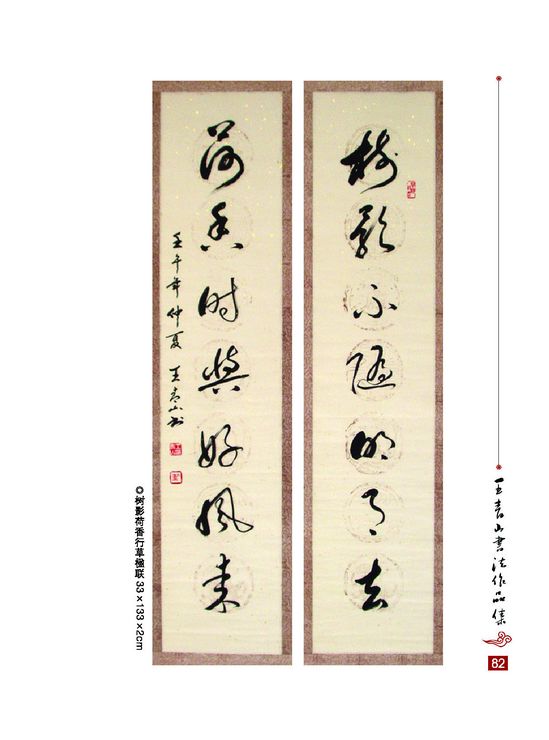 树影不随明月去
荷香时与好风来
壬午年仲夏 王青山书
◎树影荷香行草楹联 33×133×2cm
王青山书法作品集
82